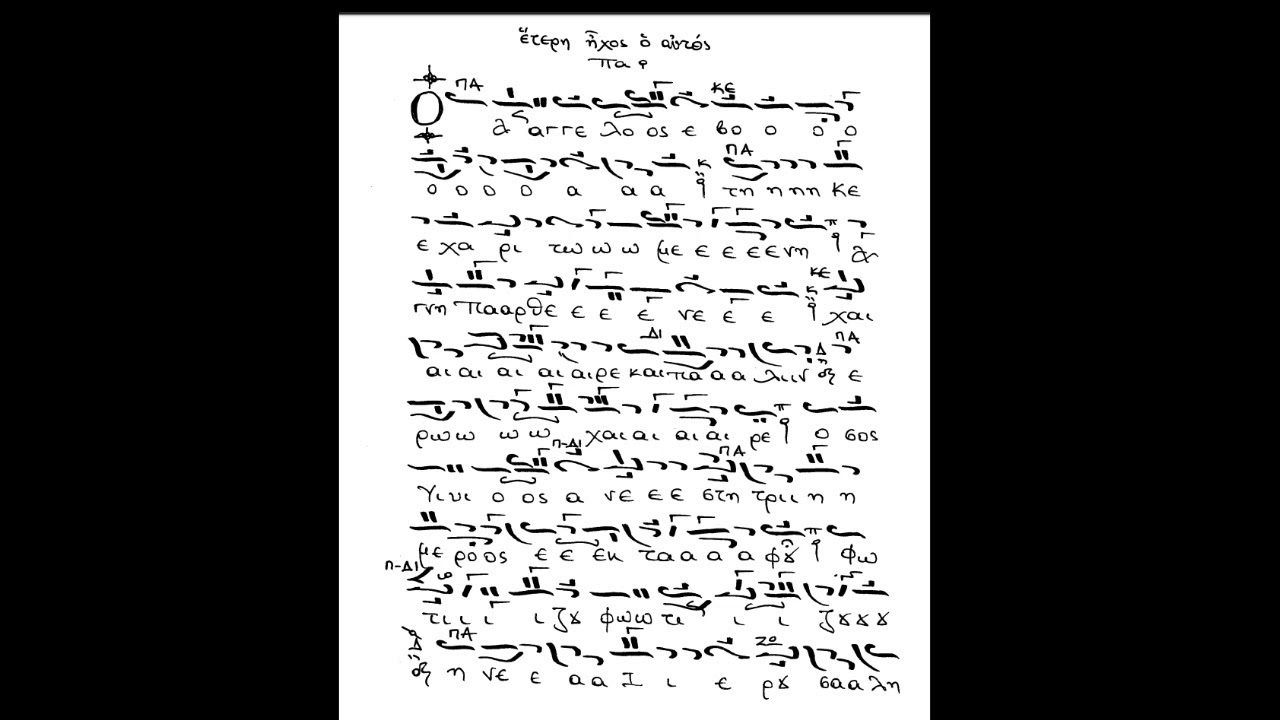 ἕτερη ἦχος ὁ αὐτός
Πα
ΠΑ ΚΕ
Ο Ἀ αγγε λο ος ε βο ο ο ο
ΠΑ
ο ο ο ο α α α τη η πη κε
ε χα ρι τω ω ω με ε ε ε ε νη Ἀ
ΚΕ
γνη Πααρθε ε ε ε νε ε ε χαι
ΔΙ ΠΑ
αι αι αι αι αιρε και πα α α λιιν ε
ρω ω ω ω χαι αι αι αι ρε ο σος
Π-ΔΙ ΠΑ
Υιυι ο ος α νε ε ε στη τριι η η
με ρο ος ε ε εκ τα α α α φȣ φω
Π-ΔΙ
τι ι ι ι ζȣ φωω τι ι ι ζȣ ȣ ȣ
ΠΑ ΖΟ
η νε ε α α Ι ι ε ρȣ σα α λη